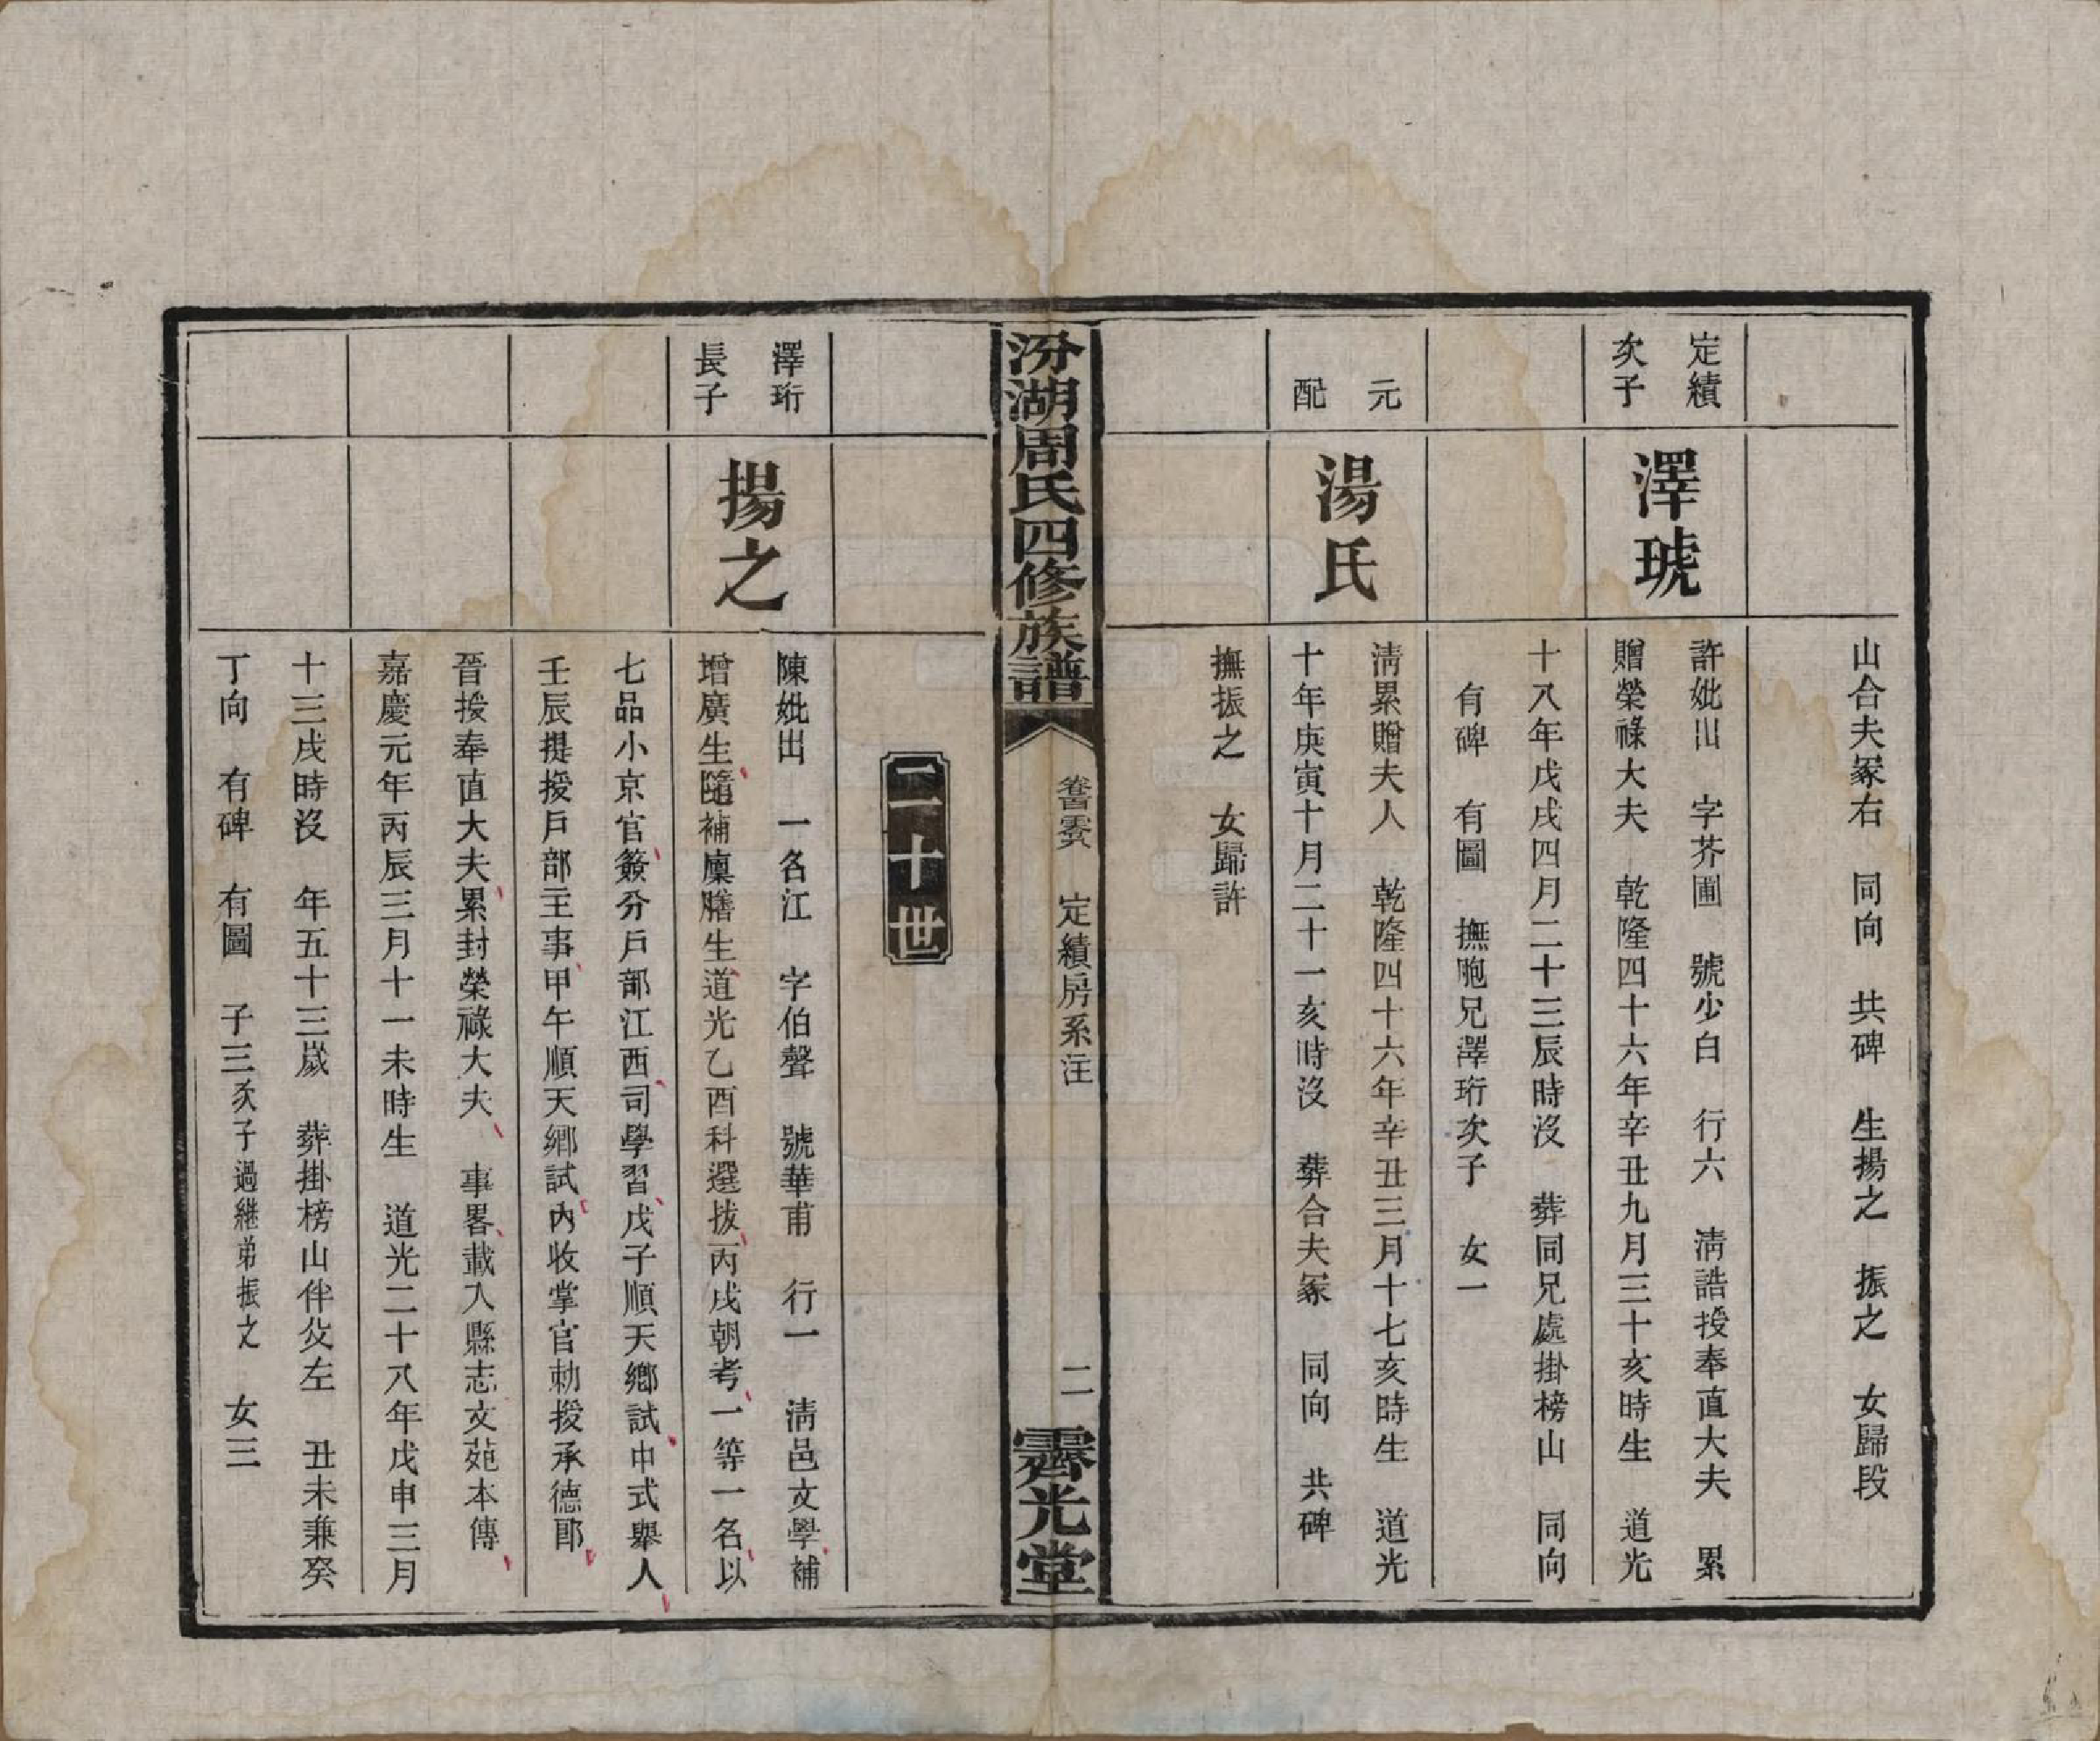 山合夫冢右 同向 共碑 生揚之 振之 女歸段
定績
次子
澤琥
許妣出 字芥圃 號少白 行六 淸誥授奉直大夫 累
贈榮祿大夫 乾隆四十六年辛丑九月三十亥時生 道光
十八年戊戌四月二十三辰時沒 葬同兄處掛榜山 同向
有碑 有圖 撫胞兄澤珩次子 女一
元
配
湯氏
淸累贈夫人 乾隆四十六年辛丑三月十七亥時生 道光
十年庚寅十月二十一亥時沒 葬合夫冢 同向 共碑
撫振之 女歸許
汾湖周氏四修族譜
定績房系注
二
霽光堂
二十世
澤珩
長子
揚之
陳妣出 一名江 字伯聲 號華甫 行一 淸邑文學補
增廣生隨補廩膳生道光乙酉科選拔丙戌朝考一等一名以
七品小京官簽分戶部江西司學習戊子順天鄉試中式舉人
壬辰提授戶部主事甲午順天鄉試內收掌官勅授承德郎
晉授奉直大夫累封榮祿大夫 事畧載入縣志文苑本傳
嘉慶元年丙辰三月十一未時生 道光二十八年戊申三月
十三戌時沒 年五十三歲 葬掛榜山伴父左 丑未兼癸
丁向 有碑 有圖 子三次子過繼弟振之 女三